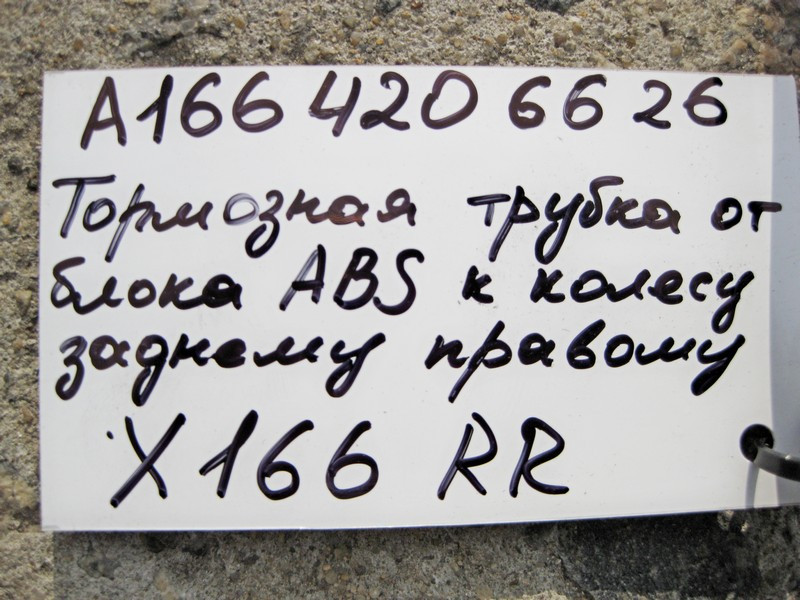 A166 420 66 26
Тормозная трубка от
блока ABS к колесу
заднему правому
X166 RR